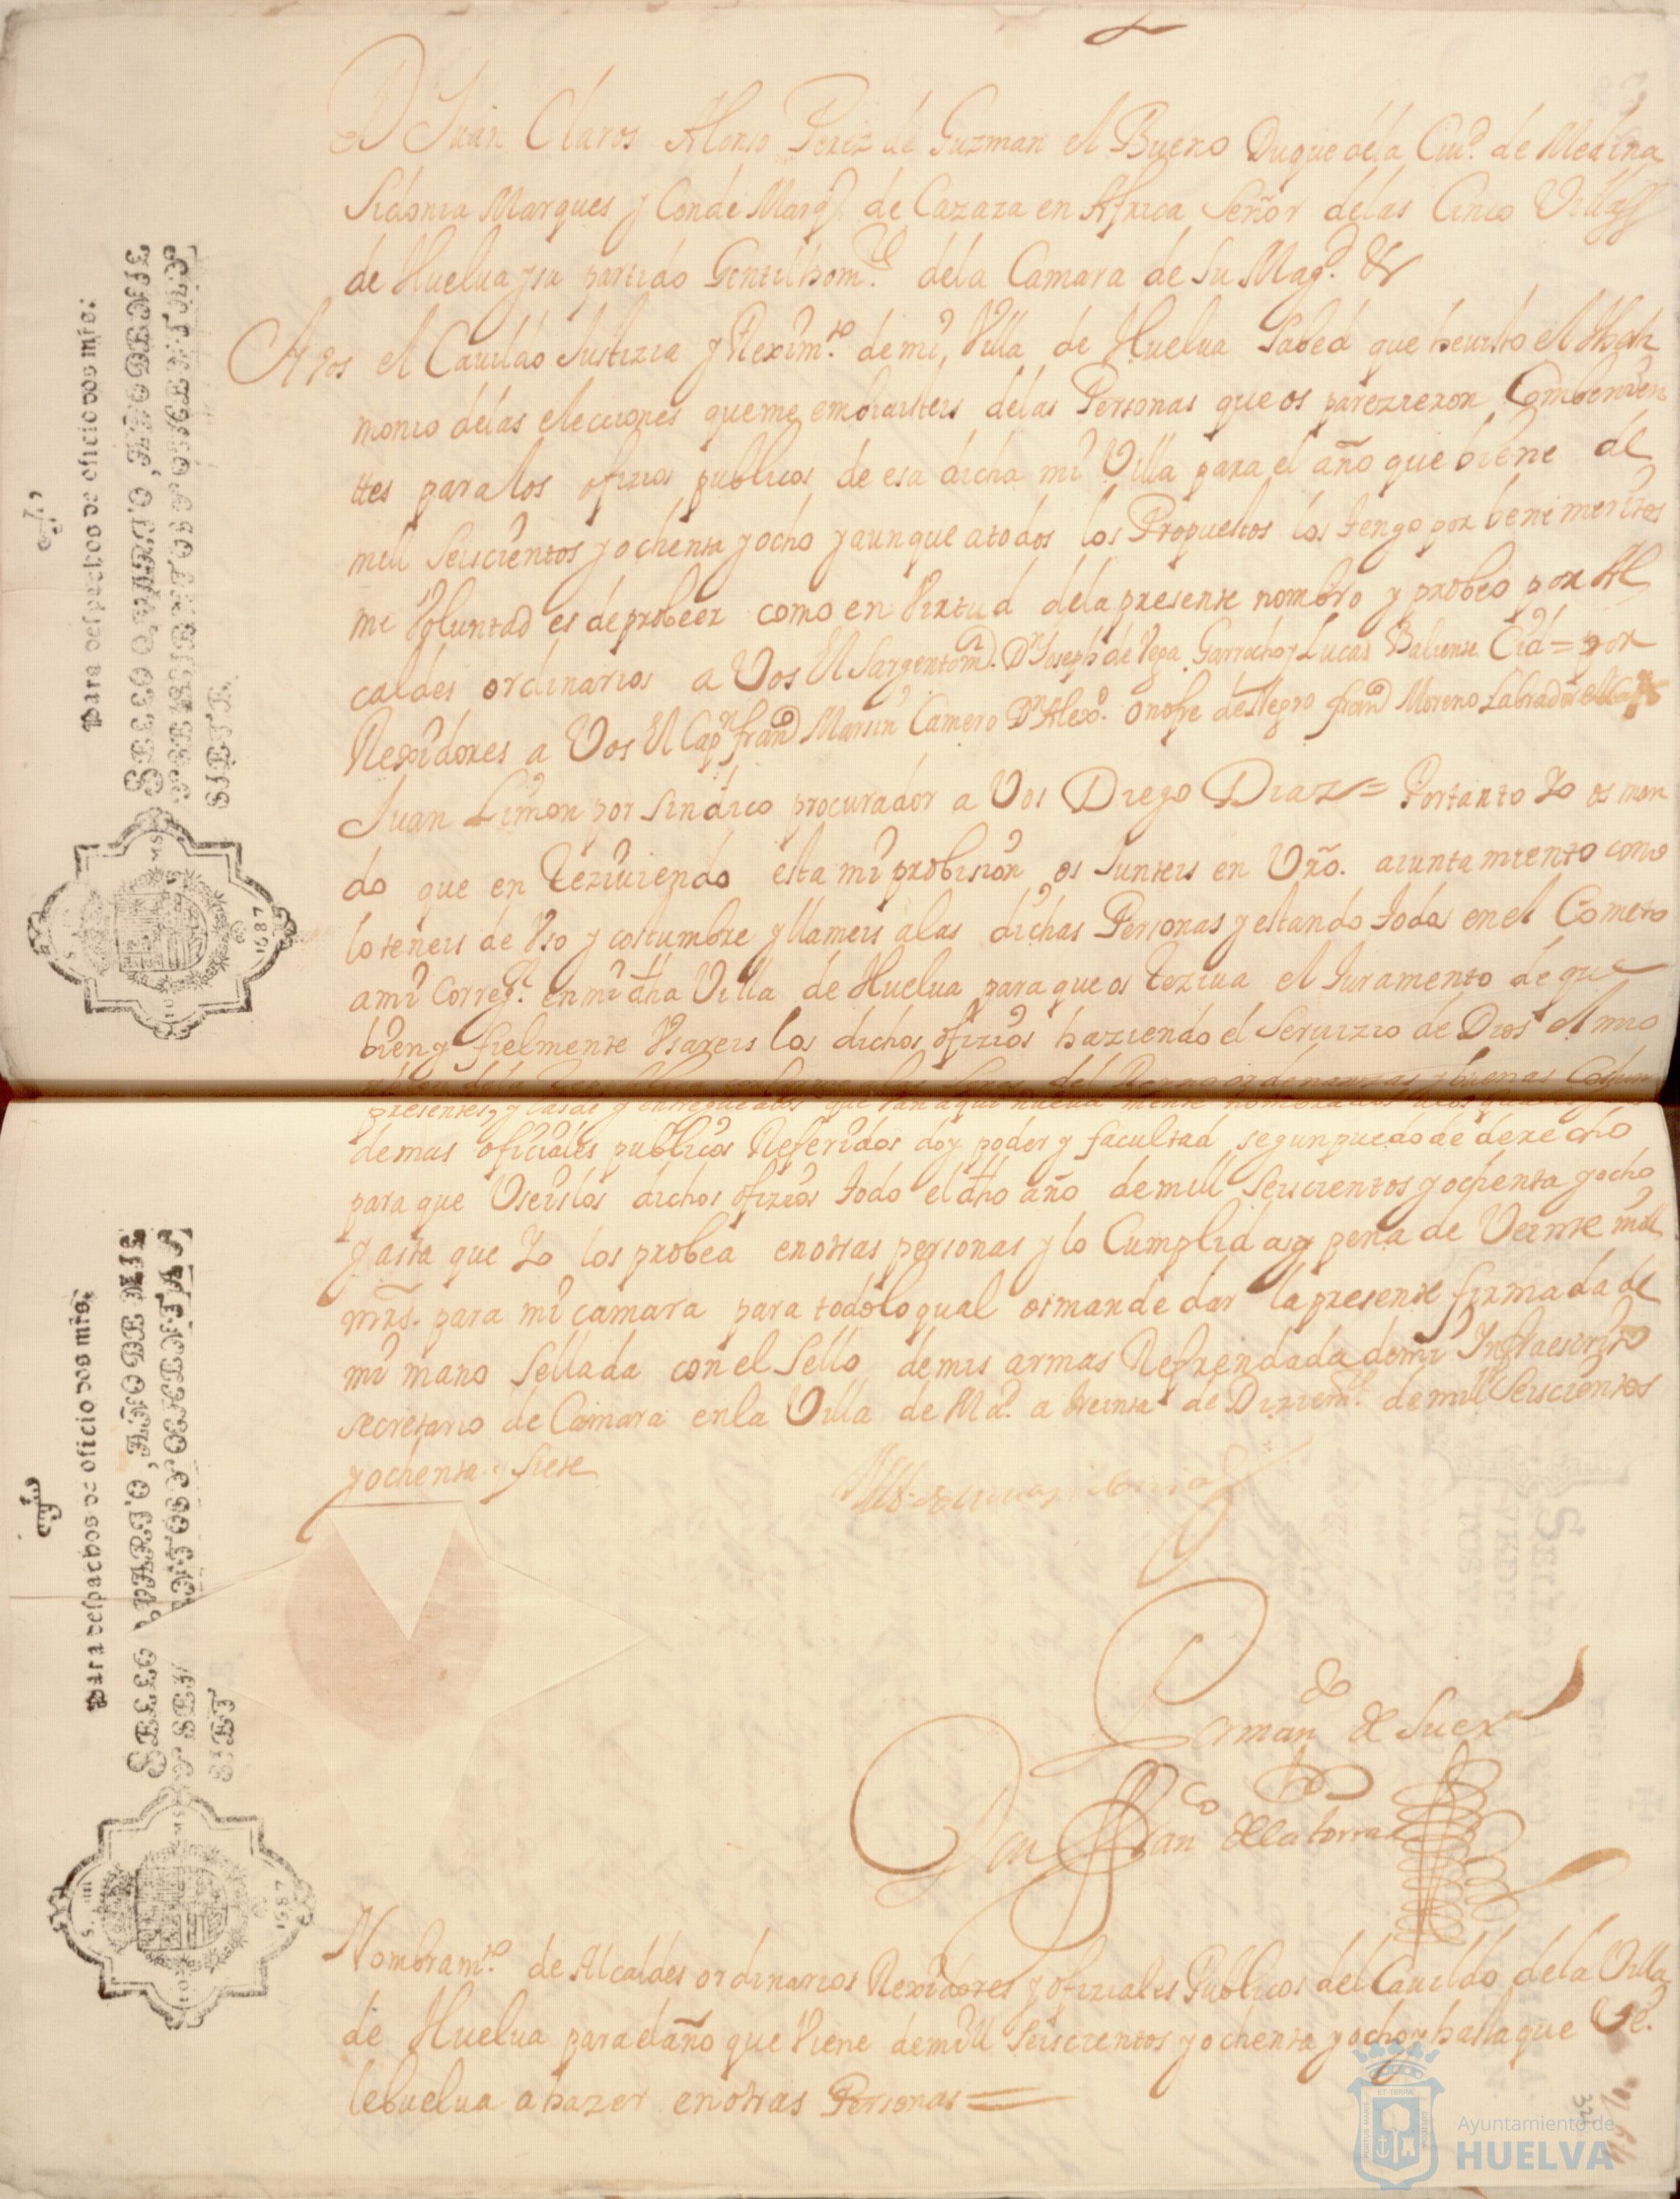 D Juan Claros Alonso Perez de Guzman el Bueno Duque dela Ciud. de Medina
Sidonia Marques y Conde Marqs. de Cazaza en Africa Señor delas Cinco Villas
de Huelua y su partido Gentilhome. dela Camara de Su Magd. &
A Vos el Cauildo Justizia y Reximto. de mi Villa de Huelua Sabed que heuisto el
monio delas elecciones queme embiasteis delas Personas que os parezieron Combenien
ttes para los ofizios publicos de esa dicha mi Villa para el año que biene de
mill Seiscientos y ochenta y ocho y aunque a todos los Propuestos los tengo por benemeritos
mi Voluntad es de probeer como en Virtud dela presente nombro y probeo por Al
caldes ordinarios a Vos El Sargentom. Dn Joseph de Vega Garrocho y Lucas Baliente Cid = y por
Rexidores a Vos El Capn. frando Martin Camero Dn Alexo. Onofre de Negro frando Moreno Labrador
Juan Limon por Sindico procurador a Vos Diego Diaz = Portanto Yo os man
do que en Reziuiendo esta mi probision os Junteis en Vro. aiuntamiento como
lo teneis de Vso y costumbre y llameis a las dichas Personas y estando todos en el Cometo
a mi Corregr. en mi dha Villa de Huelua para que os Reziua el Juramento de que
bien y fielmente Vsareis los dichos ofizios haziendo el Seruizio de Dios el mio
del Reyno ordenanzas y buenas
presentes y
demas oficiales publicos Referidos doy poder y facultad segun puedo de derecho
para que Vseis los dichos ofizios todo el dho año de mill Seiscientos y ochenta y ocho
y asta que Yo los probea en otras personas y lo Cumplid asy pena de Veinte mill
mrs. para mi camara para todo lo qual os mande dar la presente firmada de
mi mano Sellada con el Sello de mis armas Refrendada de mi Infraescripto
secretario de Camara en la Villa de Md. a treinta de Diziem. de mill Seiscientos
y ochenta y siete
Don Franco de la torre
Nombramto. de Alcaldes ordinarios Rexidores y ofiziales Publicos del Cauildo dela Villa
de Huelua para el año que Viene de mill Seiscientos y ochenta y ocho y hasta que V. E.
lebuelua a hazer en otras Personas =
Para despachos de oficio dos mrs.
SELLO QVARTO, AÑO DE MIL
Y SEISCIENTOS Y OCHENTA Y
SIETE
1687
Para despachos de oficio dos mrs.
SELLO QVARTO, AÑO DE MIL
Y SEISCIENTOS Y OCHENTA Y
SIETE
1687
32
Ayuntamiento de
HUELVA